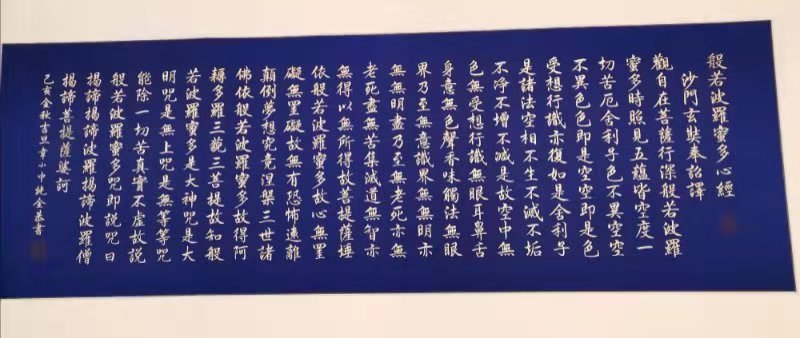 般若波羅蜜多心經
沙門玄奘奉詔譯
觀自在菩薩行深般若波羅
蜜多時照見五蘊皆空度一
切苦厄舍利子色不異空空
不異色色即是空空即是色
受想行識亦復如是舍利子
是諸法空相不生不滅不垢
不淨不增不減是故空中無
色無受想行識無眼耳鼻舌
身意無色聲香味觸法無眼
界乃至無意識界無無明亦
無無明盡乃至無老死亦無
老死盡無苦集滅道無智亦
無得以無所得故菩提薩埵
依般若波羅蜜多故心無罣
礙無罣礙故無有恐怖遠離
顛倒夢想究竟涅槃三世諸
佛依般若波羅蜜多故得阿
耨多羅三藐三菩提故知般
若波羅蜜多是大神咒是大
明咒是無上咒是無等等咒
能除一切苦真實不虛故說
般若波羅蜜多咒即說咒曰
揭諦揭諦波羅揭諦波羅僧
揭諦菩提薩婆訶
己亥金秋吉旦章小中純金恭書